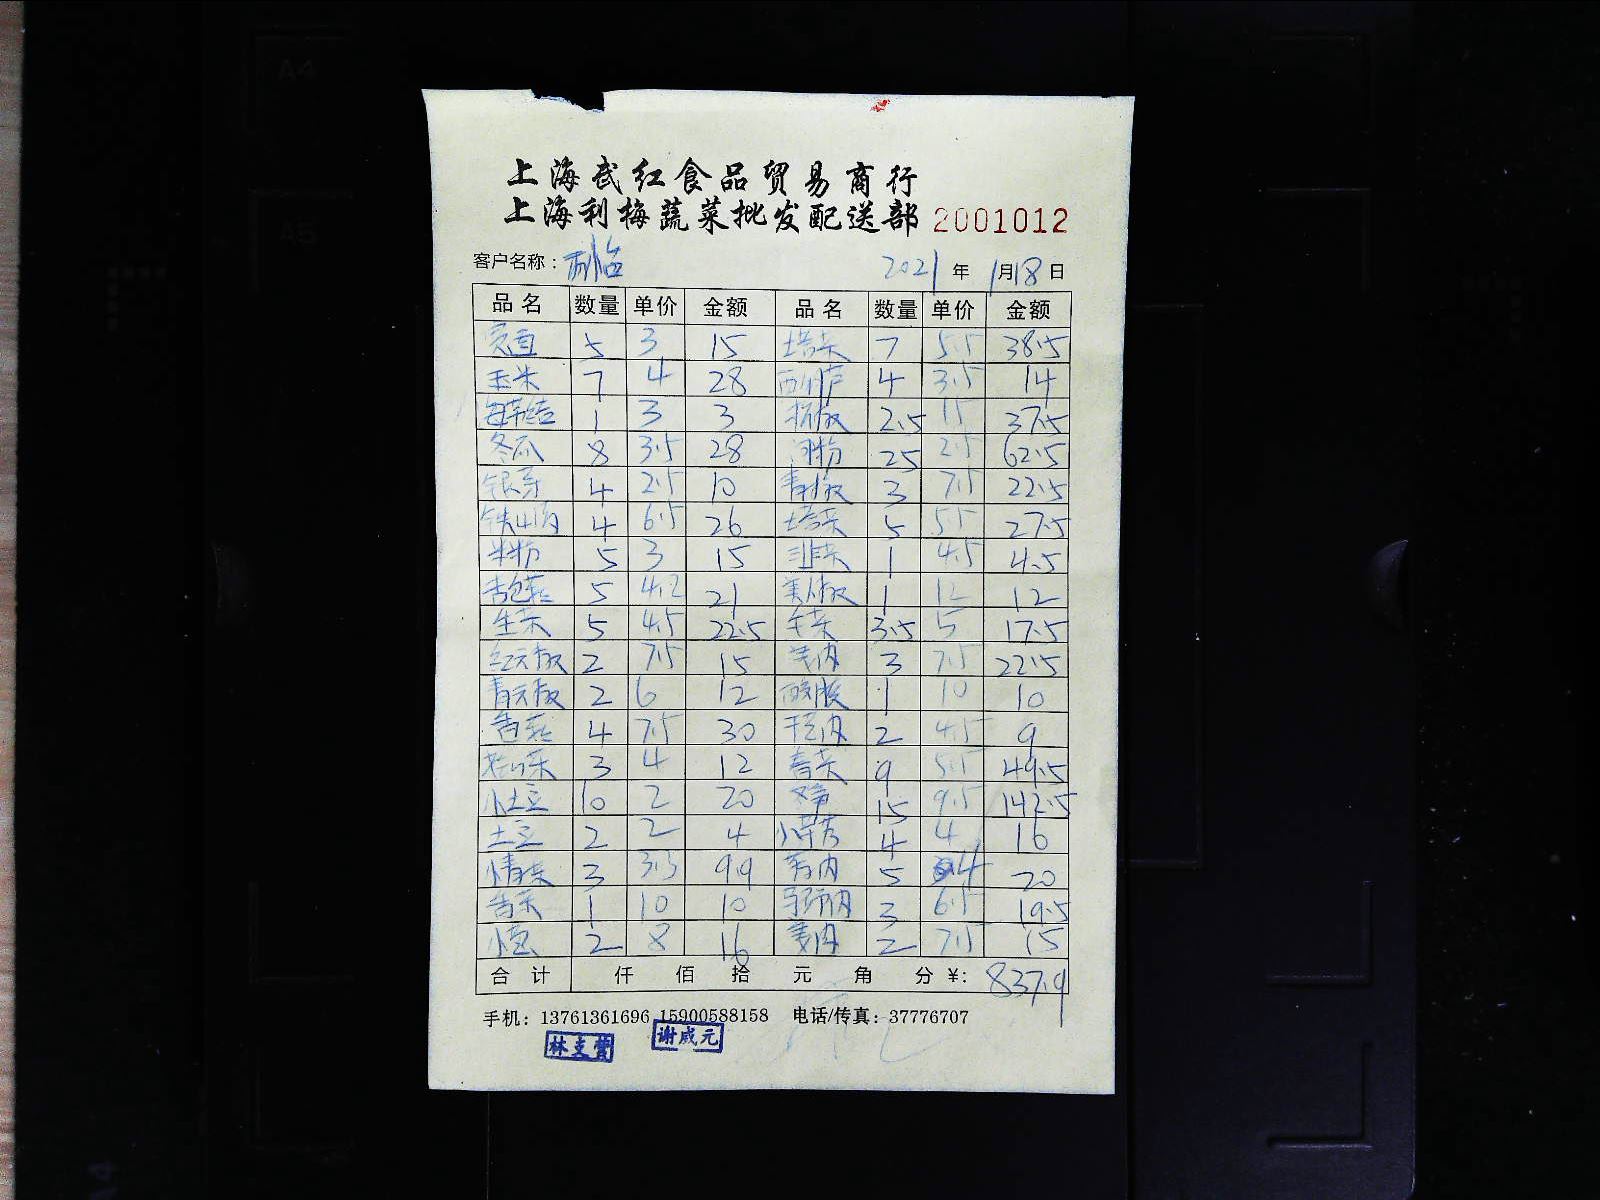 上海武红食品贸易商行
上海利梅蔬菜批发配送部 2001012
客户名称: 2021 年 1 月 18 日
品名 数量 单价 金额 品名 数量 单价 金额
5 3 15 塔菜 7 5.5 38.5
玉米 7 4 28 西葫芦 4 3.5 14
1 3 3 2.5 15 37.5
冬瓜 8 3.5 28 河粉 25 2.5 62.5
银芽 4 2.5 10 青椒 3 7.5 22.5
铁山药 4 6.5 26 塔菜 5 5.5 27.5
米粉 5 3 15 韭菜 1 4.5 4.5
杏包菇 5 4.2 21 美人椒 1 12 12
生菜 5 4.5 22.5 3.5 5 17.5
红元椒 2 7.5 15 3 7.5 22.5
青元椒 2 6 12 1 10 10
香菇 4 7.5 30 2 4.5 9
3 4 12 9 5.5 49.5
小土豆 10 2 20 15 9.5 142.5
土豆 2 2 4 4 4 16
3 3.3 9.9 5 4 20
香菜 1 10 10 3 6.5 19.5
小葱 2 8 16 2 7.5 15
合计 仟 佰 拾 元 角 分 ¥: 837.9
手机: 13761361696 15900588158 电话/传真: 37776707
林支蕾 谢成元